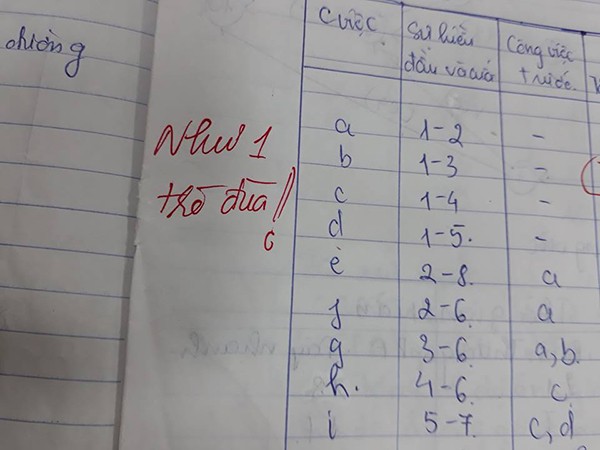 đường
Như 1
trò đùa!!
C việc
Sự kiện
đầu và cuối
Công việc
trước
a 1-2 -
b 1-3 -
c 1-4 -
d 1-5. -
e 2-8. a
f 2-6. a
g 3-6. a,b.
h. 4-6. c.
i 5-7. c,d